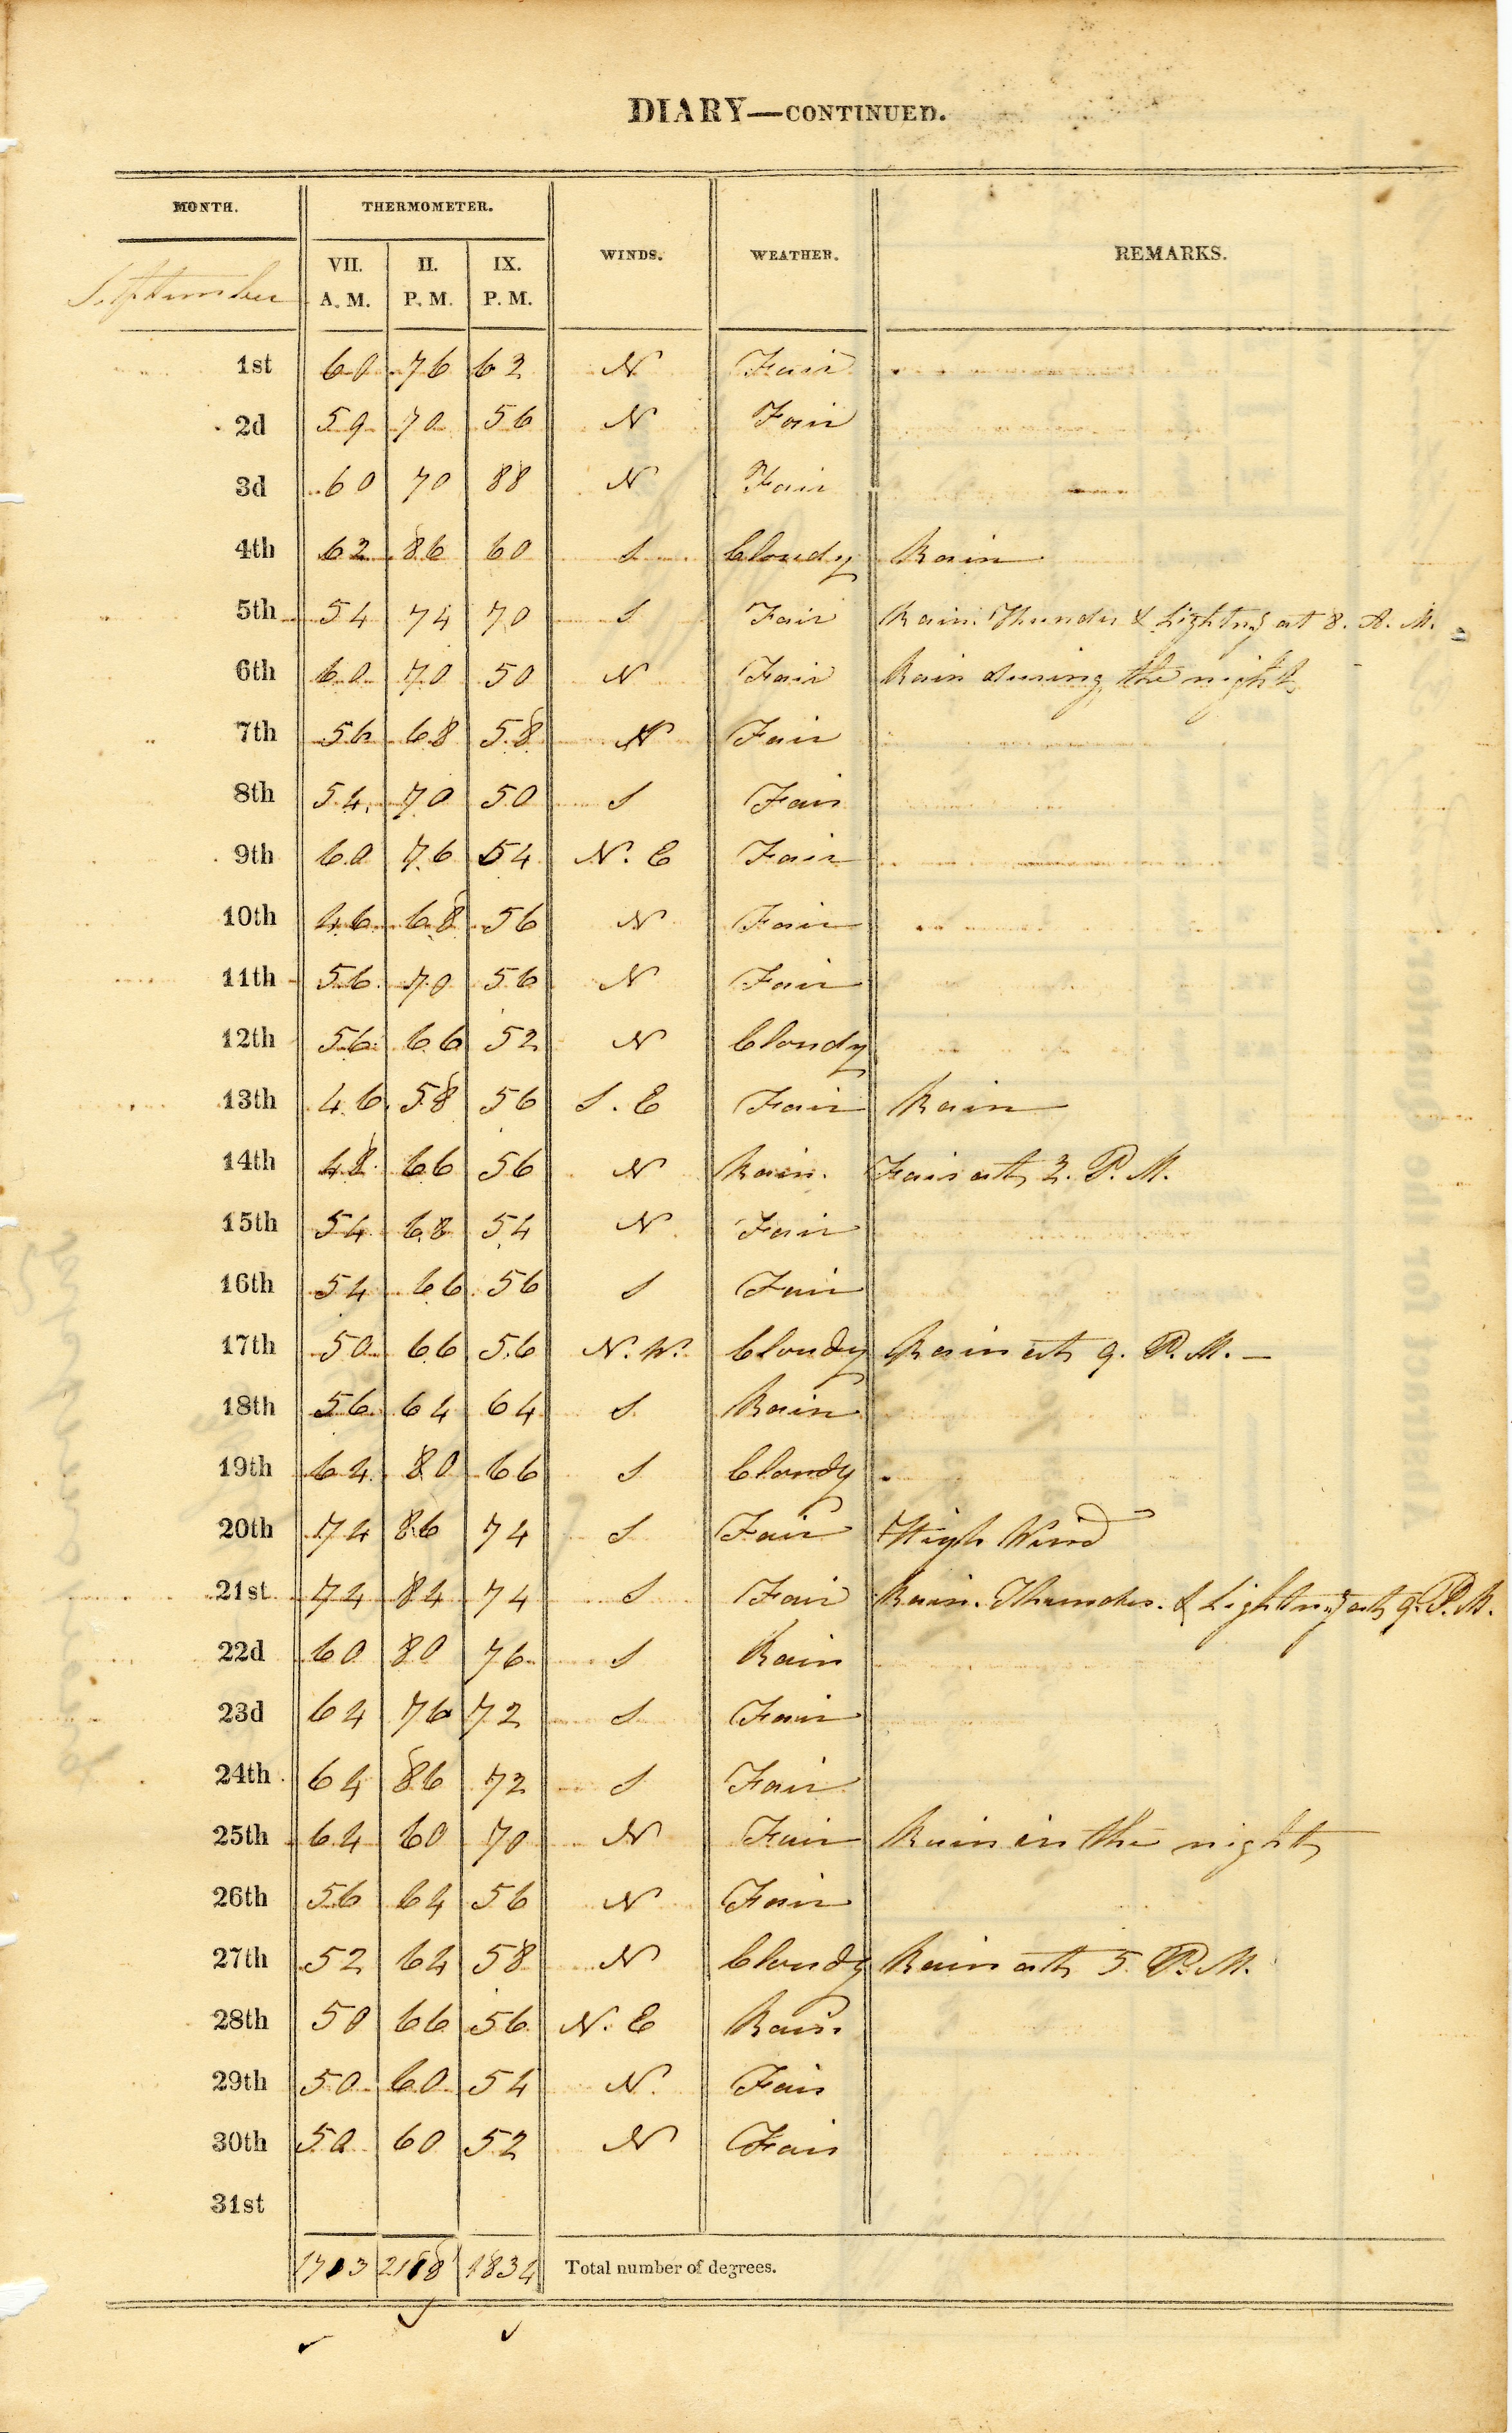 DIARY—CONTINUED.
MONTH. THERMOMETER. WINDS. WEATHER. REMARKS.
September VII. A. M. II. P. M. IX. P. M.
1st 60 76 62 N Fair
2d 59 70 56 N Fair
3d 60 70 88 N Fair
4th 62 86 60 S Cloudy Rain
5th 54 74 70 S Fair Rain. Thunder & Lightng at 8. A. M.
6th 60 70 50 N Fair Rain during the night
7th 56 68 58 N Fair
8th 54 70 50 S Fair
9th 60 76 54 N. E Fair
10th 46 68 56 N Fair
11th 56 70 56 N Fair
12th 56 66 52 N Cloudy
13th 46 58 56 S. E Fair Rain
14th 48 66 56 N Rain. Fair at 2. P. M.
15th 54 68 54 N Fair
16th 54 66 56 S Fair
17th 50 66 56 N. W. Cloudy Rain at 9. P. M. —
18th 56 64 64 S Rain
19th 64 80 66 S Cloudy
20th 74 86 74 S Fair High Wind
21st 74 84 74 S Fair Rain. Thunder. & Lightng at 9. P. M.
22d 60 80 76 S Rain
23d 64 76 72 S Fair
24th 64 86 72 S Fair
25th 64 60 70 N Fair Rain in the night
26th 56 64 56 N Fair
27th 52 64 58 N Cloudy Rain at 5 P. M.
28th 50 66 56 N. E Rain
29th 50 60 54 N. Fair
30th 50 60 52 N Fair
31st
1713 2118 1834 Total number of degrees.